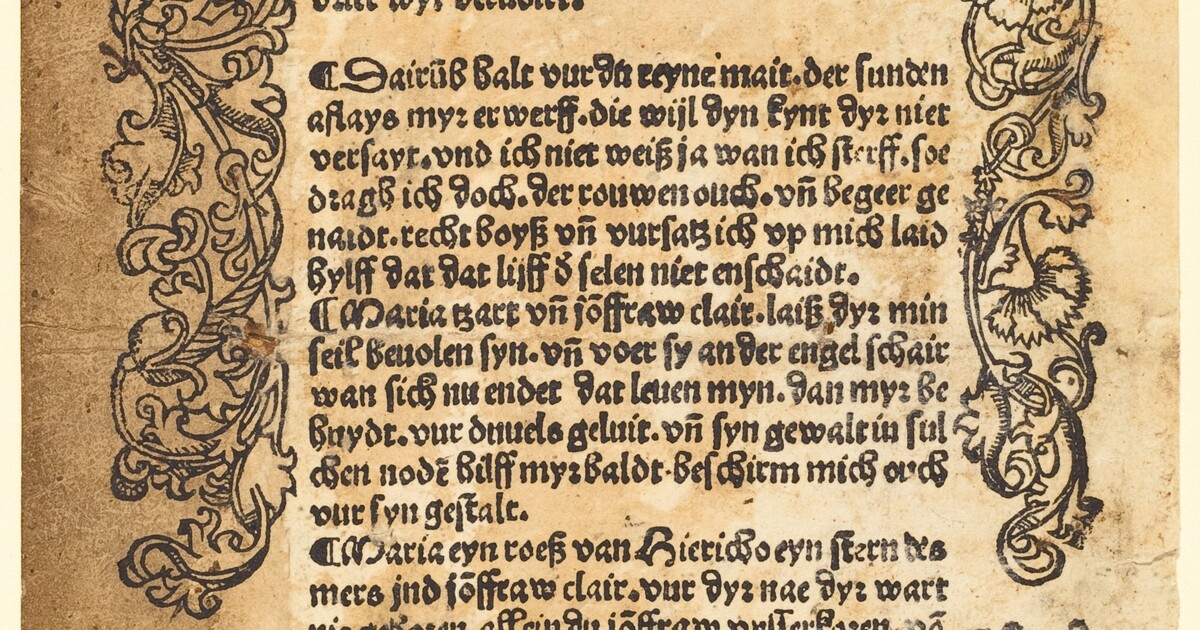 ¶ Dairūb balt vur du reyne mait. der sunden
aflays myr erwerff. die wijl dyn kynt dyr niet
versayt. vnd ich niet weiß ja wan ich sterff. soe
dragh ich doch. der rouwen ouch. vn̄ begeer ge
naidt. recht boyß vn̄ vursatz ich vp mich laid
hylff dat dat lijff d̄ selen niet enschaidt.
¶ Maria tzart vn̄ jōffraw clair. laiß dyr min
seil beuolen syn. vn̄ voer sy an der engel schair
wan sich nu endet dat leuen myn. dan myr be
huydt. vur duuels geluit. vn̄ syn gewalt in sul
chen nodē hilff myr baldt. beschirm mich ouch
vur syn gestalt.
¶ Maria eyn roeß van Hiericho eyn stern des
mers jnd jōffraw clair. vur dyr nae dyr wart